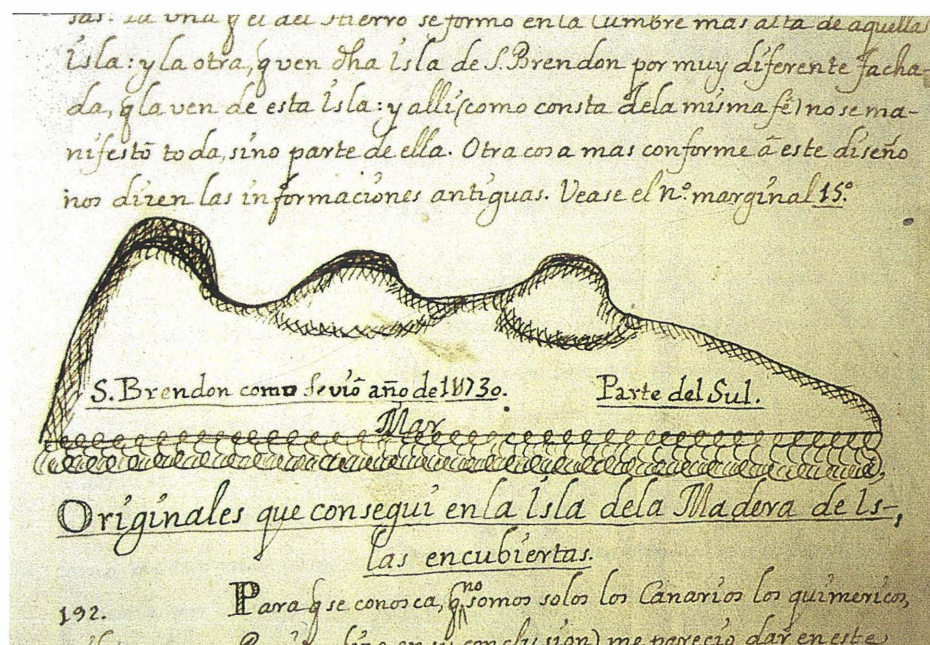 sas: La una q̃ el del Hierro se formo en la Cumbre mas alta de aquella
Isla: y la otra, q̃ ven dh̃a Isla de S. Brendon por muy diferente facha-
da, q̃ la ven de esta Isla: y alli (como consta dela misma fé) no se ma-
nifestò toda, sino parte de ella. Otra cosa mas conforme â este diseño
nos dizen las informaciones antiguas. Vease el n.º marginal 15º
S. Brendon como se viò año de 1730. Parte del Sul.
Mar
Originales que consegui en la Isla dela Madera de Is-,
las encubiertas.
192. Para q̃ se conosca, q̃ no somos solos los Canarios los quimericos,
en su conclusion) me pareciò dar en este